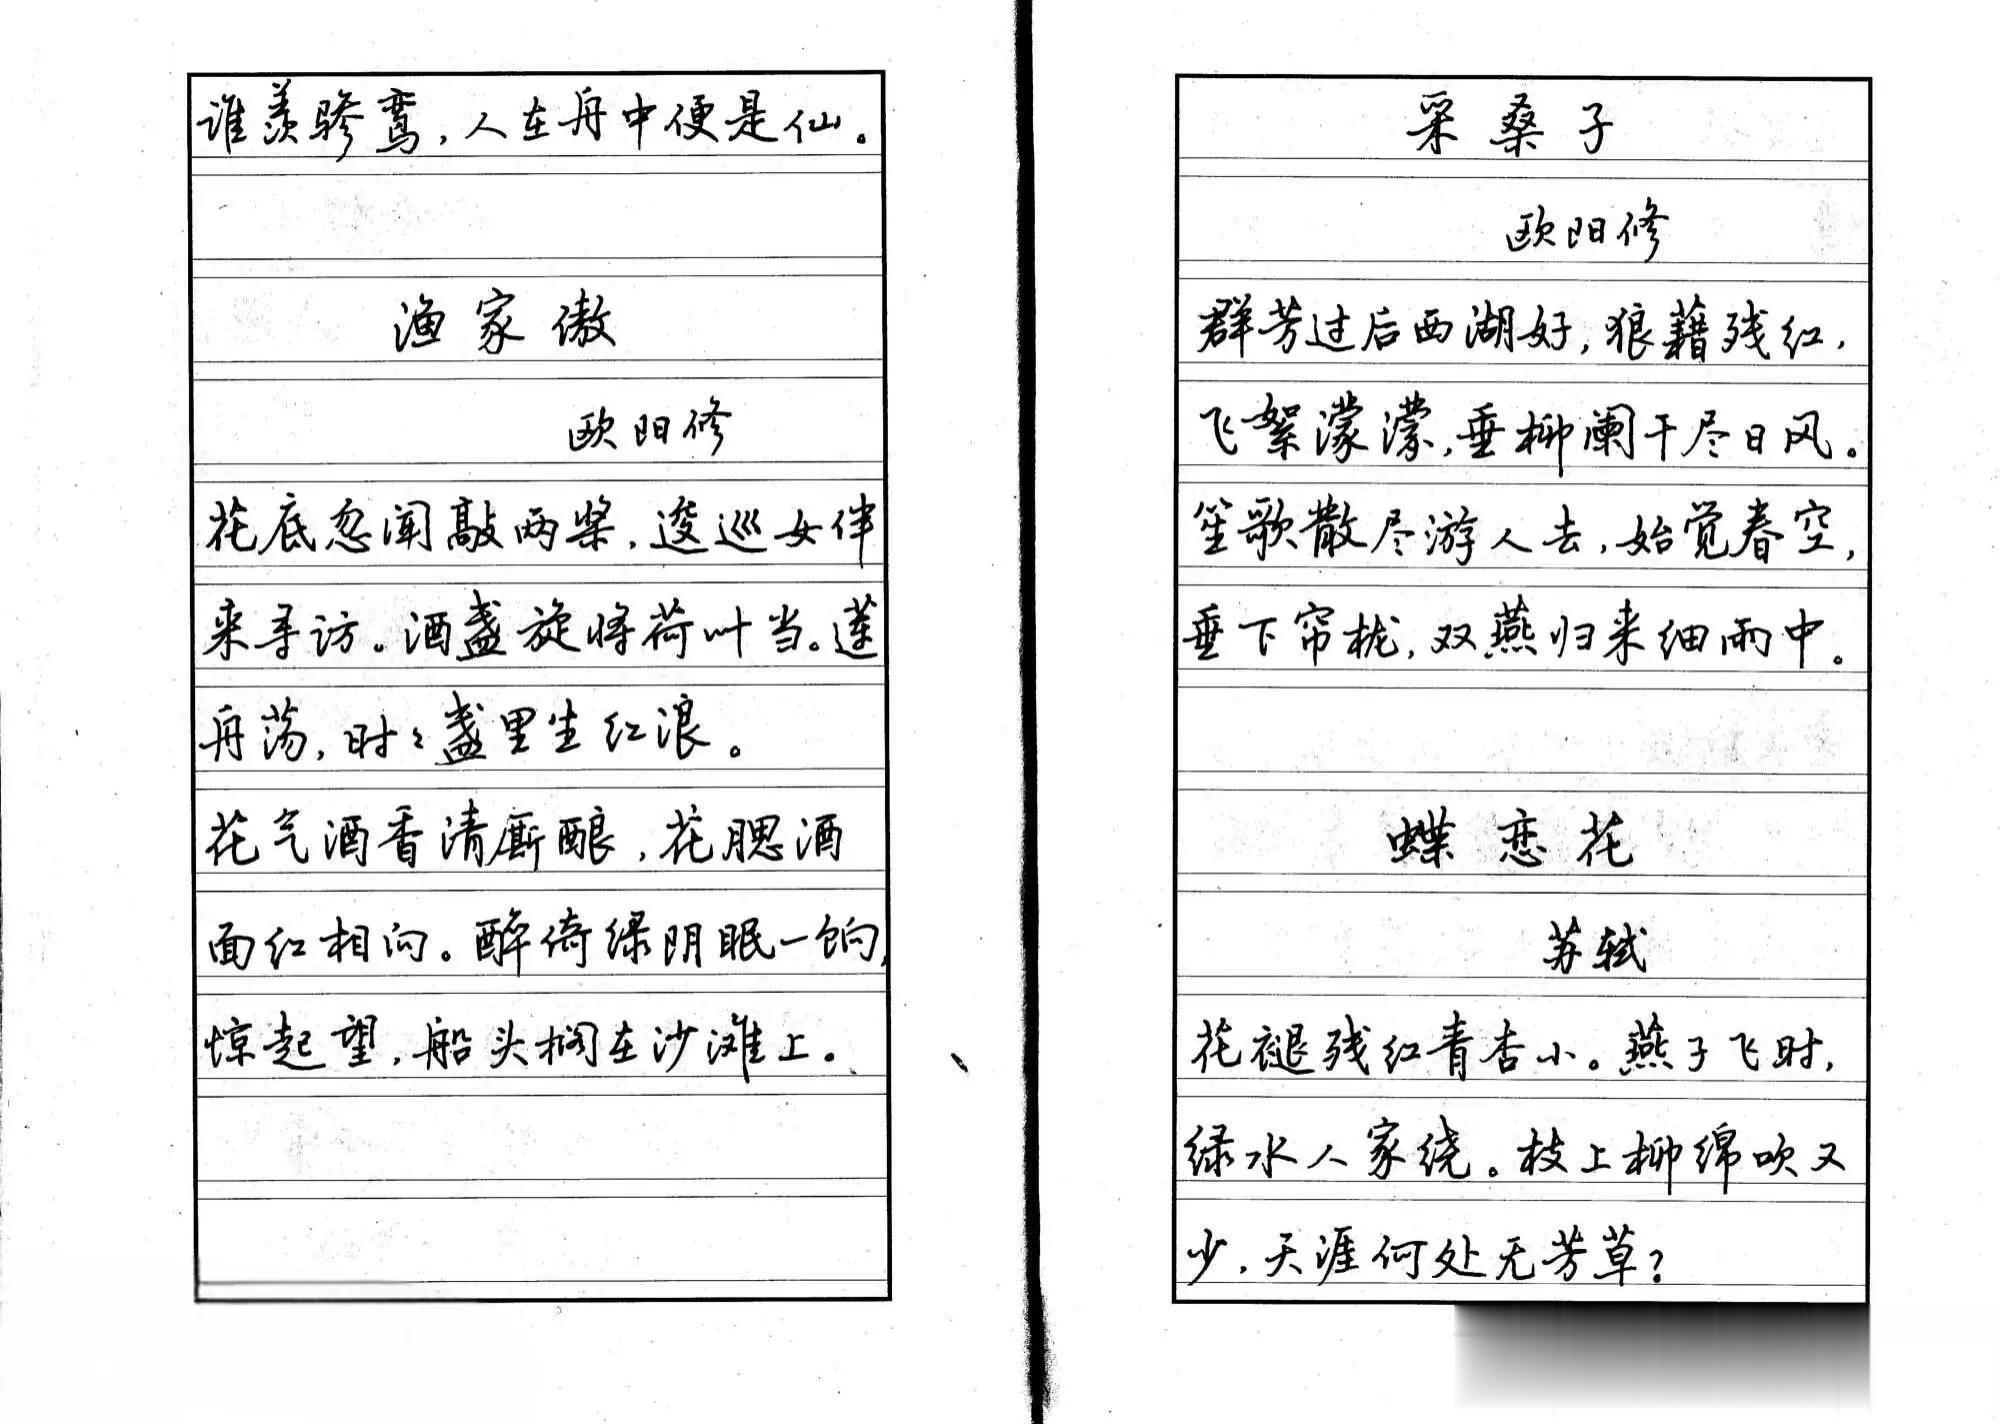 谁羡骖鸾，人在舟中便是仙。
渔家傲
欧阳修
花底忽闻敲两桨，逡巡女伴
来寻访。酒盏旋将荷叶当。莲
舟荡，时々盏里生红浪。
花气酒香清厮酿，花腮酒
面红相向。醉倚绿阴眠一饷，
惊起望，船头搁在沙滩上。
采桑子
欧阳修
群芳过后西湖好，狼藉残红，
飞絮濛濛，垂柳阑干尽日风。
笙歌散尽游人去，始觉春空，
垂下帘栊，双燕归来细雨中。
蝶恋花
苏轼
花褪残红青杏小。燕子飞时，
绿水人家绕。枝上柳绵吹又
少，天涯何处无芳草？